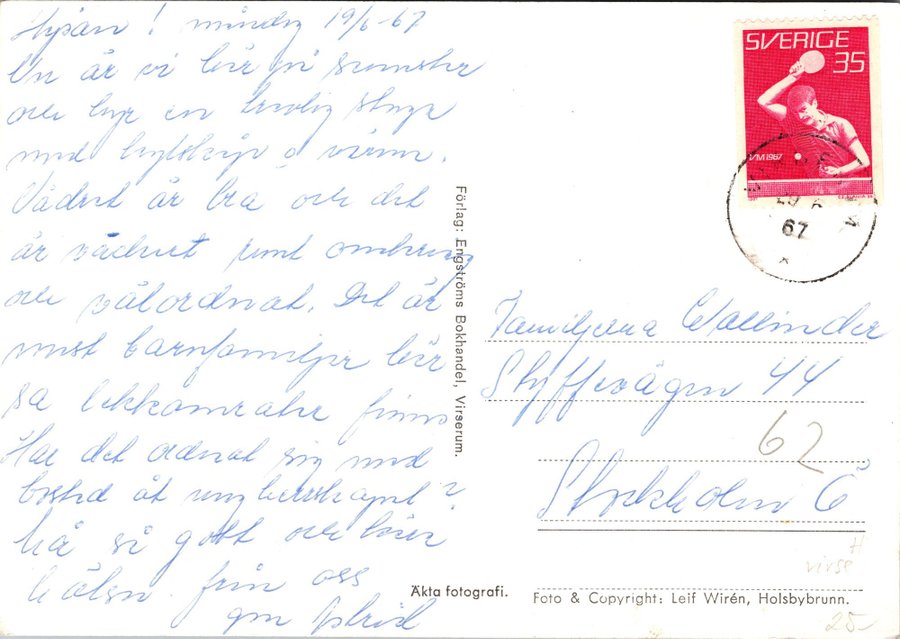 Hejsan! måndag 19/6-67
Nu är vi här på semester
och hyr en trevlig stuga
med kylskåp o värme.
Vädret är bra och det
är vackert runt omkring
och välordnat. Det är
mest barnfamiljer här
så lekkamrater finns
Har det ordnat sig med
bostad åt ungherrskapet?
Må så gott och kära
hälsn. från oss
gm Astrid
Förlag: Engströms Bokhandel, Virserum.
Äkta fotografi.
SVERIGE
35
VM 1967
67
Familjerna Wallinder
Styffevägen 44
62
Stockholm Ö
virse
Foto & Copyright: Leif Wirén, Holsbybrunn.
25-